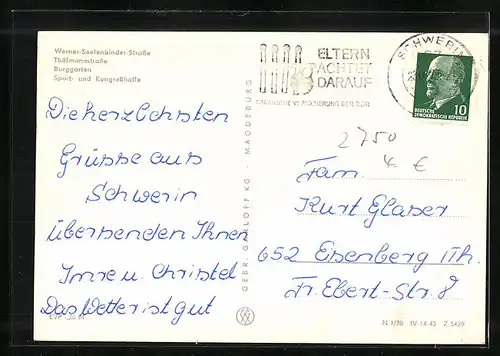 Werner-Seelenbinder-Straße
Thälmannstraße
Burggarten
Sport- und Kongreßhalle
ELTERN
ACHTET
DARAUF
SCHWERIN
DEUTSCHE
DEMOKRATISCHE REPUBLIK
10
Die herzlchsten
Grüsse aus
Schwerin
übersenden Ihnen
Imre u. Christel
Das Wetter ist gut
GEBR. GARLOFF KG. MAGDEBURG
2750
4 €
Fam.
Kurt Glaser
652 Eisenberg Th.
Fr. Ebert-Str. 8
N 1/70 IV-14-45 Z 5429